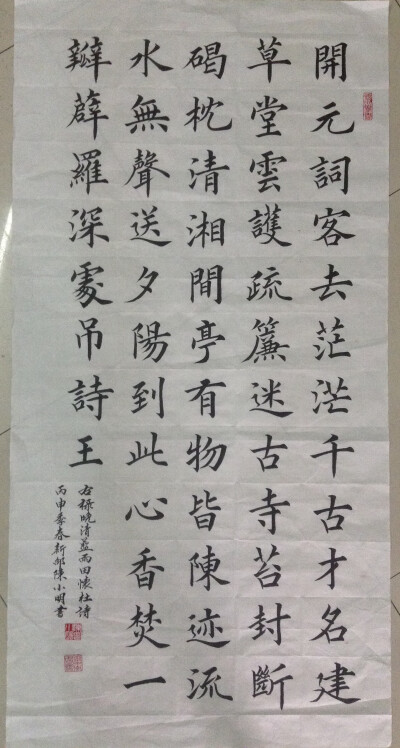 開元詞客去茫茫千古才名建
草堂雲護疏簾迷古寺苔封斷
碣枕清湘間亭有物皆陳迹流
水無聲送夕陽到此心香焚一
瓣薜羅深處吊詩王
右祿晚清田懷杜詩
丙申暮春新邵陳小明書